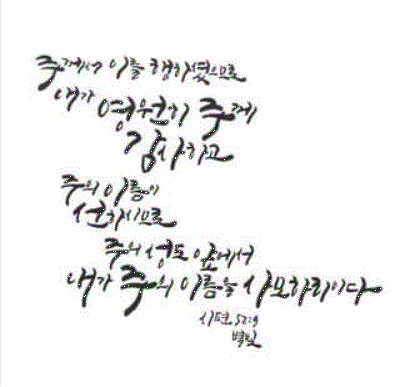 주께서 이를 행하셨으므로
내가 영원히 주께
감사하고
주의 이름이
선하시므로
주의 성도 앞에서
내가 주의 이름을 사모하리이다
시편 52:9
별빛